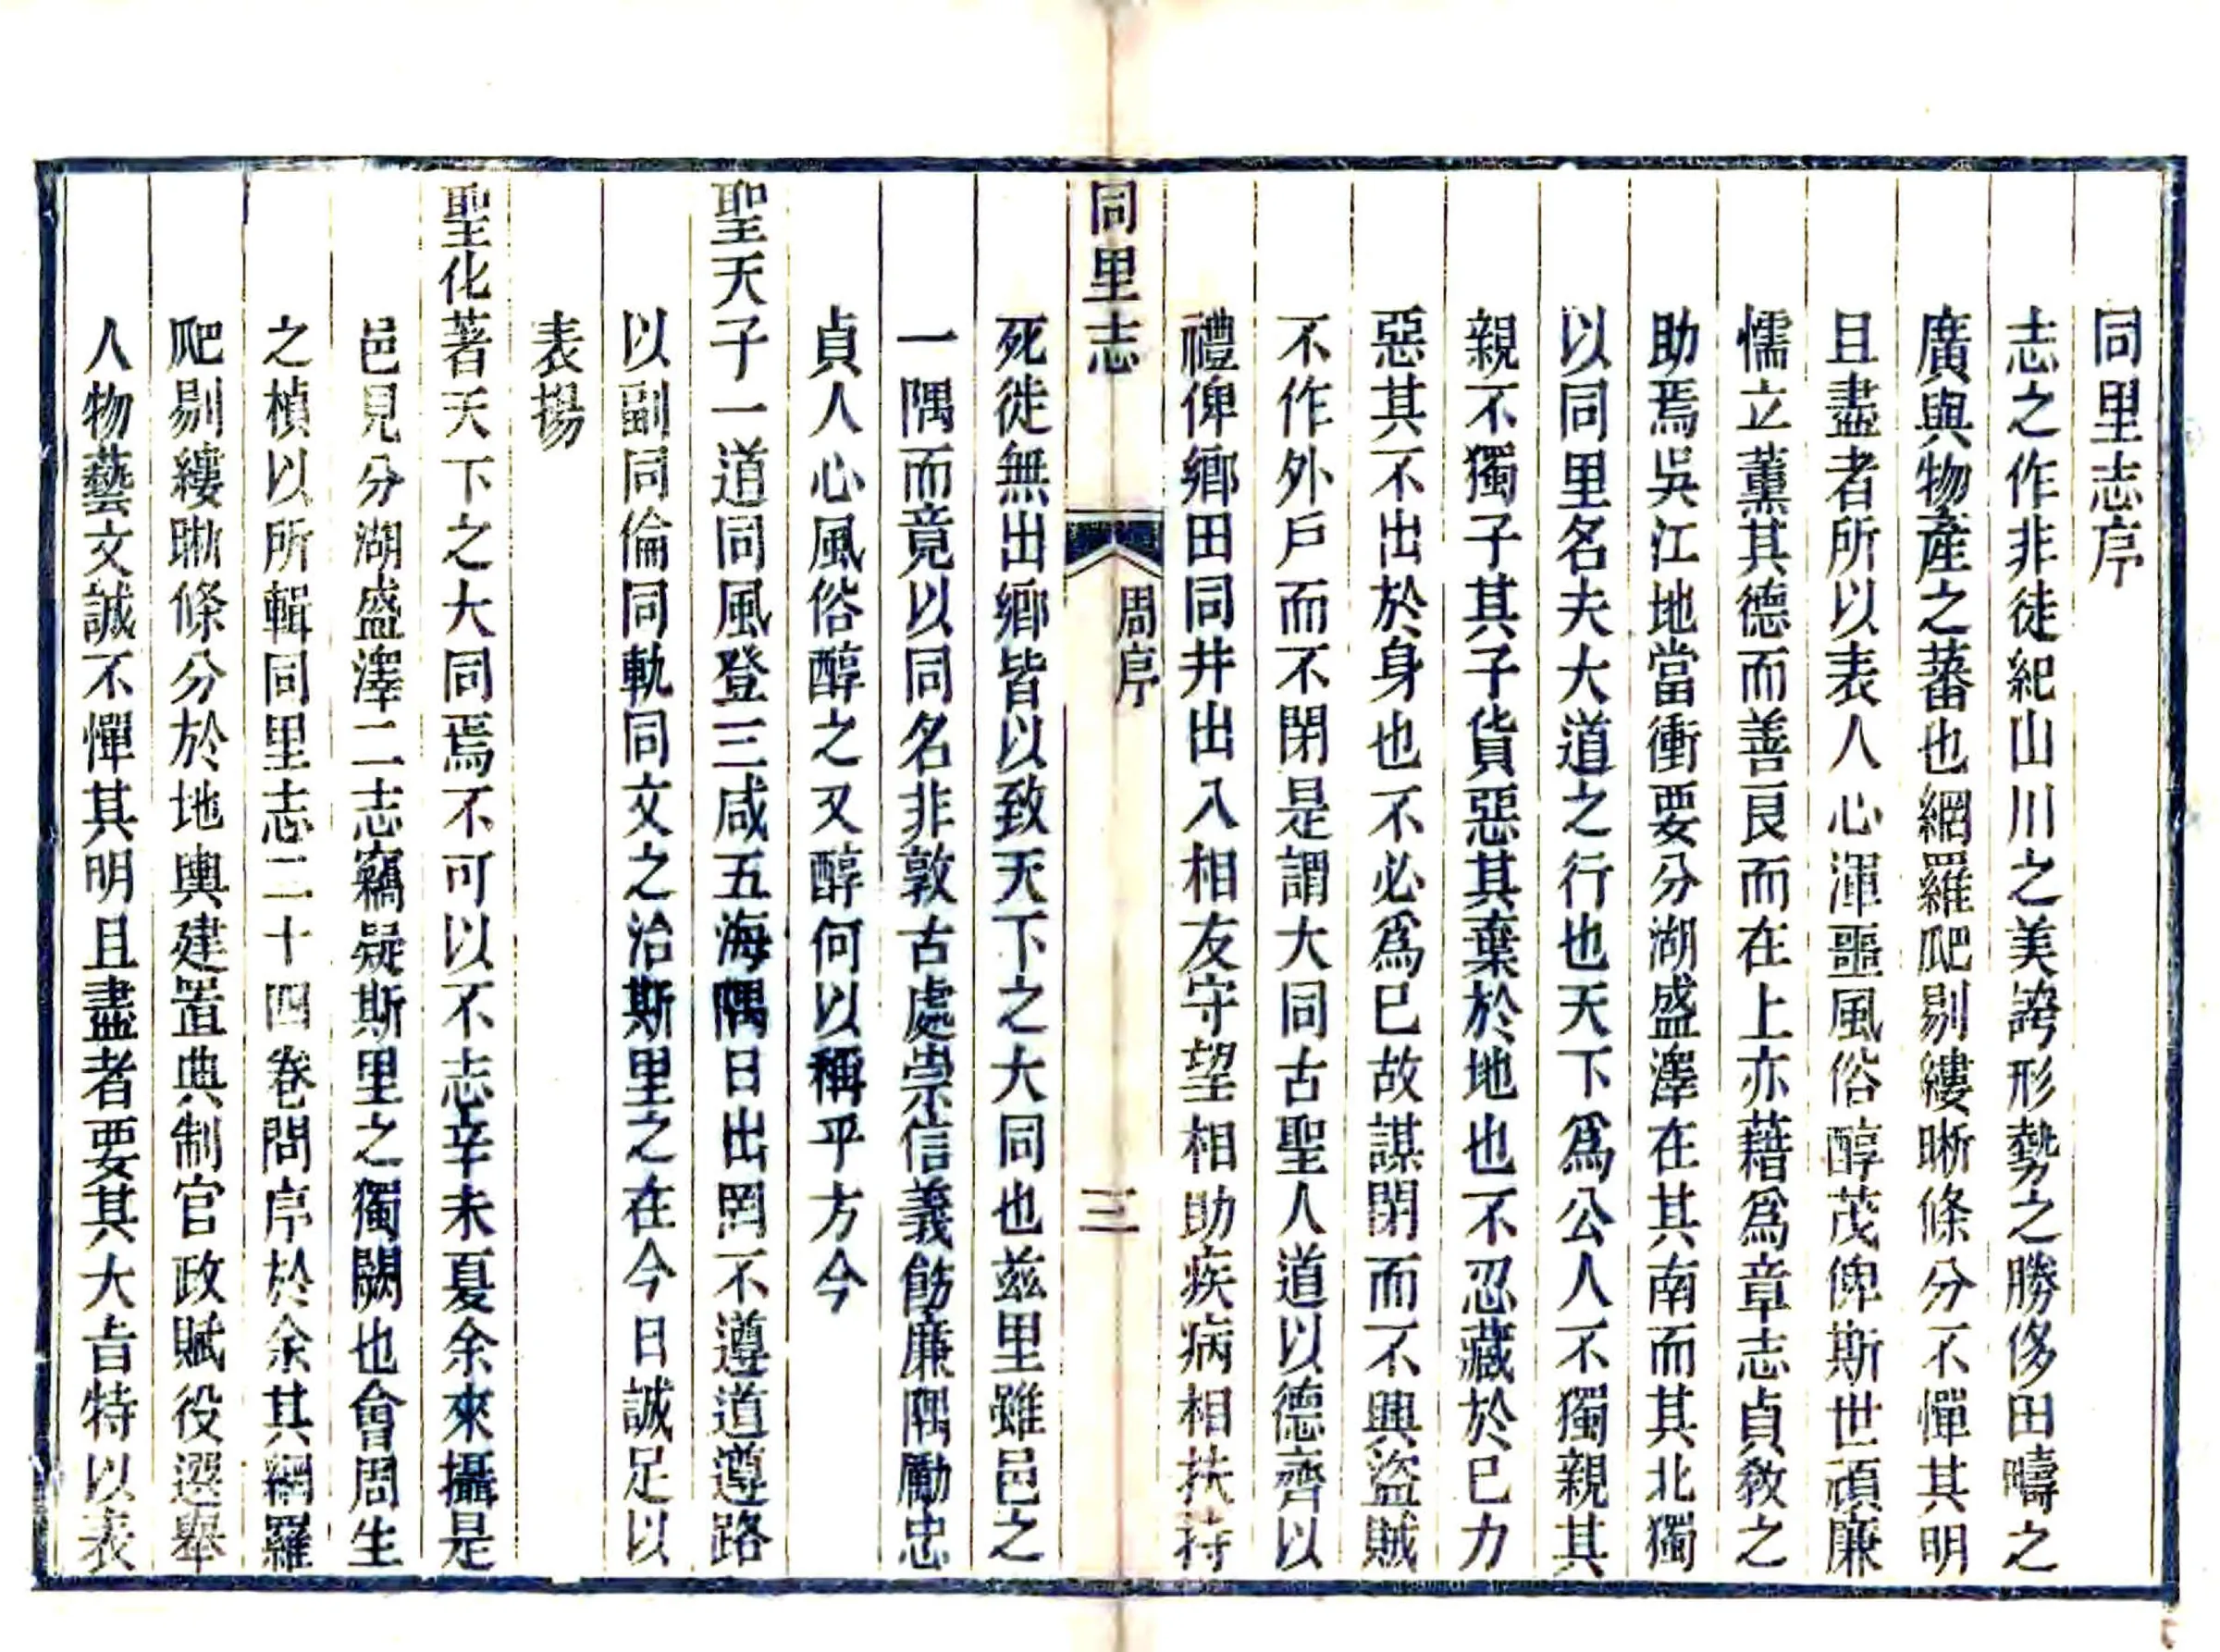 同里志序
志之作非徒紀山川之美誇形勢之勝侈田疇之
廣與物產之蕃也網羅爬剔縷晰條分不憚其明
且盡者所以表人心渾噩風俗醇茂俾斯世頑廉
懦立薰其德而善良而在上亦藉爲章志貞敎之
助焉吳江地當衝要分湖盛澤在其南而其北獨
以同里名夫大道之行也天下爲公人不獨親其
親不獨子其子貨惡其棄於地也不忍藏於巳力
惡其不出於身也不必爲巳故謀閉而不興盜賊
不作外戶而不閉是謂大同古聖人道以德齊以
禮俾鄉田同井出入相友守望相助疾病相扶持
同里志
周序
三
死徙無出鄉皆以致天下之大同也兹里雖邑之
一隅而竟以同名非敦古處崇信義飭廉隅勵忠
貞人心風俗醇之又醇何以稱乎方今
聖天子一道同風登三咸五海隅日出罔不遵道遵路
以副同倫同軌同文之治斯里之在今日誠足以
表揚
聖化著天下之大同焉不可以不志辛未夏余來攝是
邑見分湖盛澤二志竊疑斯里之獨闕也會周生
之楨以所輯同里志二十四卷問序於余其網羅
爬剔縷晰條分於地輿建置典制官政賦役選舉
人物藝文誠不憚其明且盡者要其大旨特以表